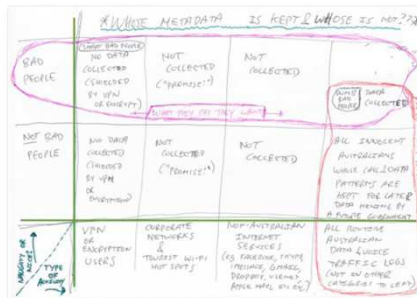 * WHOSE METADATA IS KEPT & WHOSE IS NOT??
BAD
PEOPLE
(SMART BAD PEOPLE)
NO DATA
COLLECTED
(SHIELDED
BY VPN
OR ENCRYPT)
NOT
COLLECTED
("PROMISE!")
NOT
COLLECTED
DUMB
BAD
PEOPLE
DATA
COLLECTED
WHAT THEY SAY THEY WANT
NOT BAD
PEOPLE
NO DATA
COLLECTED
(SHIELDED
BY VPN
OR
ENCRYPTION)
NOT
COLLECTED
("PROMISE!")
NOT
COLLECTED
ALL INNOCENT
AUSTRALIANS
WHOSE CALL & DATA
PATTERNS ARE
KEPT FOR LATER
DATA MINING BY
A FUTURE GOVERNMENT
NAUGHTY OR
NICE?
TYPE OF
ACTIVITY
VPN
OR
ENCRYPTION
USERS
CORPORATE
NETWORKS
&
TOURIST WI-FI
HOT SPOTS
NON-AUSTRALIAN
INTERNET
SERVICES
(eg FACEBOOK, SKYPE,
IMESSAGE, GMAIL,
DROPBOX,
APPLE MAIL
ALL ROUTINE
AUSTRALIAN
DATA & VOICE
TRAFFIC LOGS
(NOT IN OTHER
CATEGORIES TO LEFT)